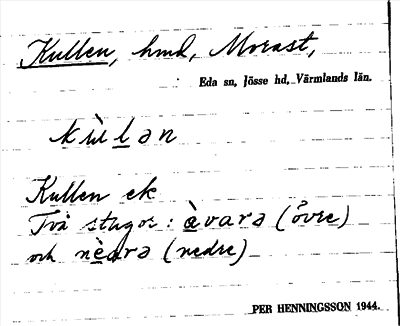 Kullen, hmd, Morast,
Eda sn, Jösse hd, Värmlands län.
kùlən
Kullen ek
Två stugor: àvarə (Övre)
och nèarə (nedre)
PER HENNINGSSON 1944.